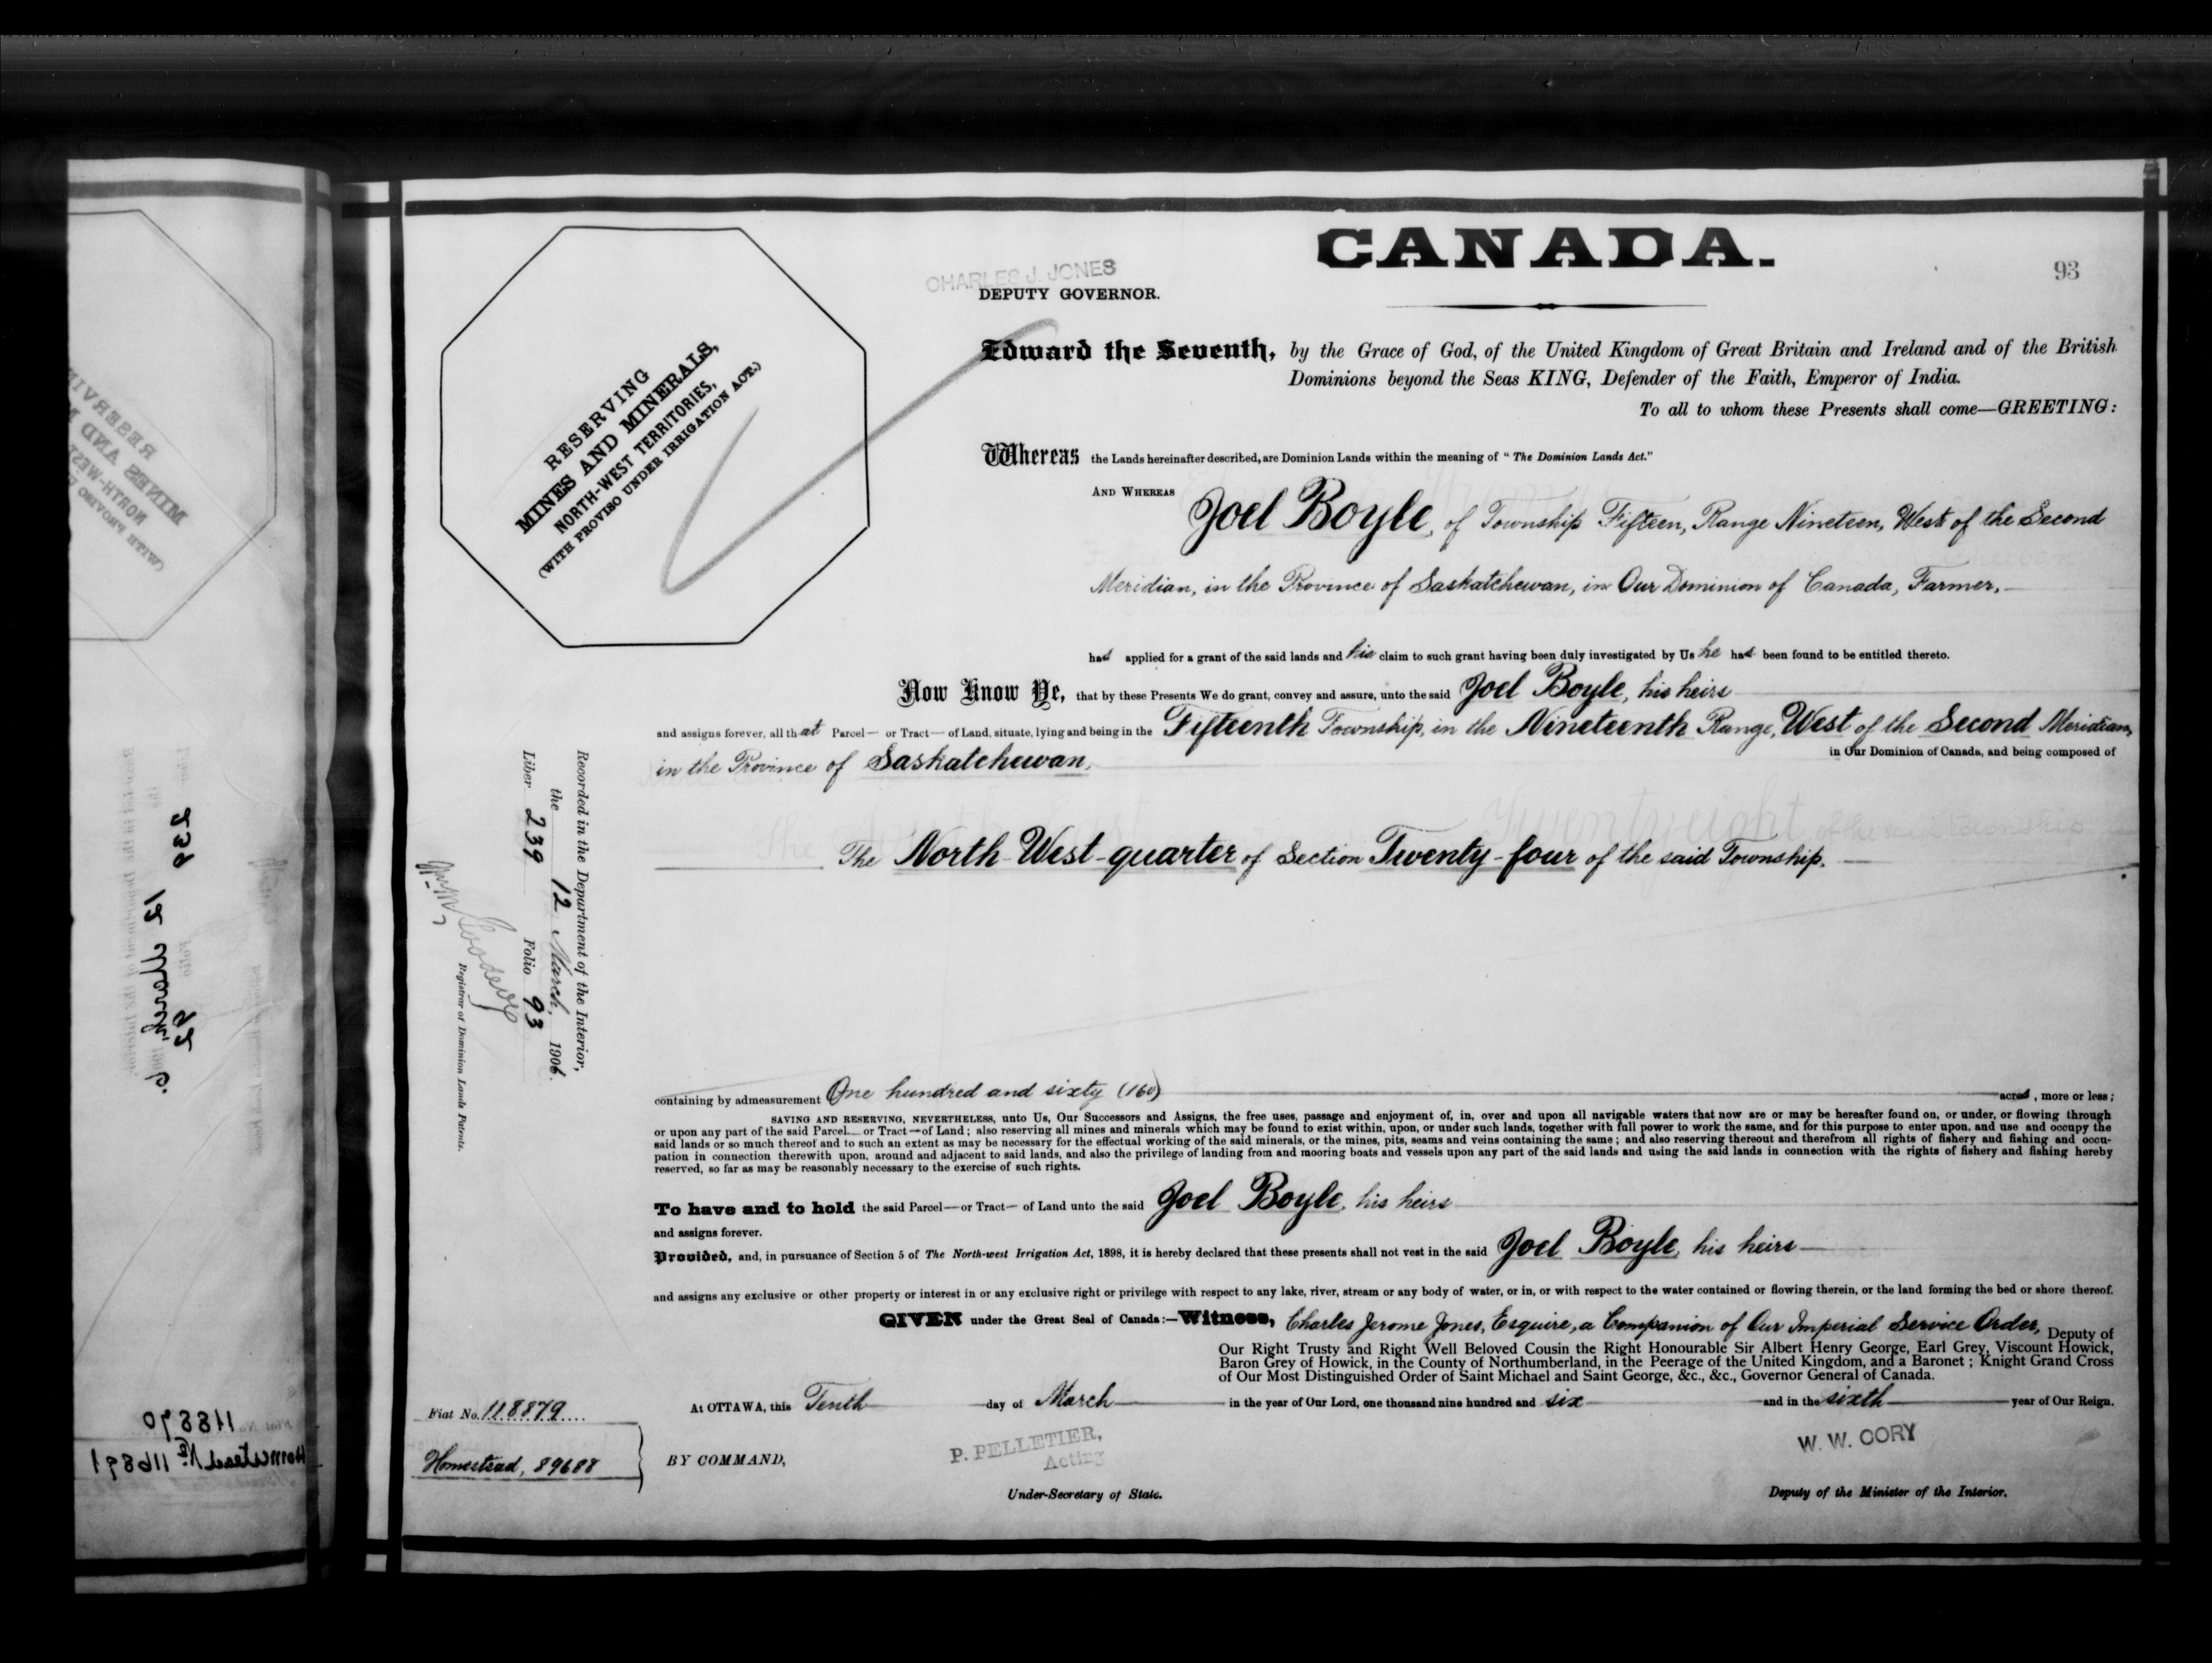 CANADA.
93
CHARLES J. JONES
DEPUTY GOVERNOR.
RESERVING
MINES AND MINERALS,
NORTH-WEST TERRITORIES,
(WITH PROVISO UNDER IRRIGATION ACT.)
Edward the Seventh, by the Grace of God, of the United Kingdom of Great Britain and Ireland and of the British
Dominions beyond the Seas KING, Defender of the Faith, Emperor of India.
To all to whom these Presents shall come—GREETING:
Whereas the Lands hereinafter described, are Dominion Lands within the meaning of "The Dominion Lands Act."
AND WHEREAS
Joel Boyle, of Township Fifteen, Range Nineteen, West of the Second
Meridian, in the Province of Saskatchewan, in Our Dominion of Canada, Farmer,
had applied for a grant of the said lands and his claim to such grant having been duly investigated by Us he had been found to be entitled thereto.
Now Know Ye, that by these Presents We do grant, convey and assure, unto the said Joel Boyle, his heirs
and assigns forever, all that Parcel— or Tract— of Land, situate, lying and being in the Fifteenth Township, in the Nineteenth Range, West of the Second Meridian,
in the Province of Saskatchewan,
in Our Dominion of Canada, and being composed of
The North-West-quarter of Section Twenty-four of the said Township.
Recorded in the Department of the Interior,
the 12 March, 1906.
Liber 239 Folio 93
Registrar of Dominion Lands Patents.
containing by admeasurement One hundred and sixty (160) acres, more or less;
SAVING AND RESERVING, NEVERTHELESS, unto Us, Our Successors and Assigns, the free uses, passage and enjoyment of, in, over and upon all navigable waters that now are or may be hereafter found on, or under, or flowing through
or upon any part of the said Parcel— or Tract—of Land; also reserving all mines and minerals which may be found to exist within, upon, or under such lands, together with full power to work the same, and for this purpose to enter upon, and use and occupy the
said lands or so much thereof and to such an extent as may be necessary for the effectual working of the said minerals, or the mines, pits, seams and veins containing the same; and also reserving thereout and therefrom all rights of fishery and fishing and occu-
pation in connection therewith upon, around and adjacent to said lands, and also the privilege of landing from and mooring boats and vessels upon any part of the said lands and using the said lands in connection with the rights of fishery and fishing hereby
reserved, so far as may be reasonably necessary to the exercise of such rights.
To have and to hold the said Parcel—or Tract— of Land unto the said Joel Boyle, his heirs
and assigns forever.
Provided, and, in pursuance of Section 5 of The North-west Irrigation Act, 1898, it is hereby declared that these presents shall not vest in the said Joel Boyle, his heirs
and assigns any exclusive or other property or interest in or any exclusive right or privilege with respect to any lake, river, stream or any body of water, or in, or with respect to the water contained or flowing therein, or the land forming the bed or shore thereof.
GIVEN under the Great Seal of Canada:—Witness, Charles Jerome Jones, Esquire, a Companion of Our Imperial Service Order, Deputy of
Our Right Trusty and Right Well Beloved Cousin the Right Honourable Sir Albert Henry George, Earl Grey, Viscount Howick,
Baron Grey of Howick, in the County of Northumberland, in the Peerage of the United Kingdom, and a Baronet; Knight Grand Cross
of Our Most Distinguished Order of Saint Michael and Saint George, &c., &c., Governor General of Canada.
At OTTAWA, this Tenth day of March in the year of Our Lord, one thousand nine hundred and six and in the sixth year of Our Reign.
Fiat No. 118879
Homestead, 89688
BY COMMAND,
P. PELLETIER,
Acting
Under-Secretary of State.
W. W. CORY
Deputy of the Minister of the Interior.